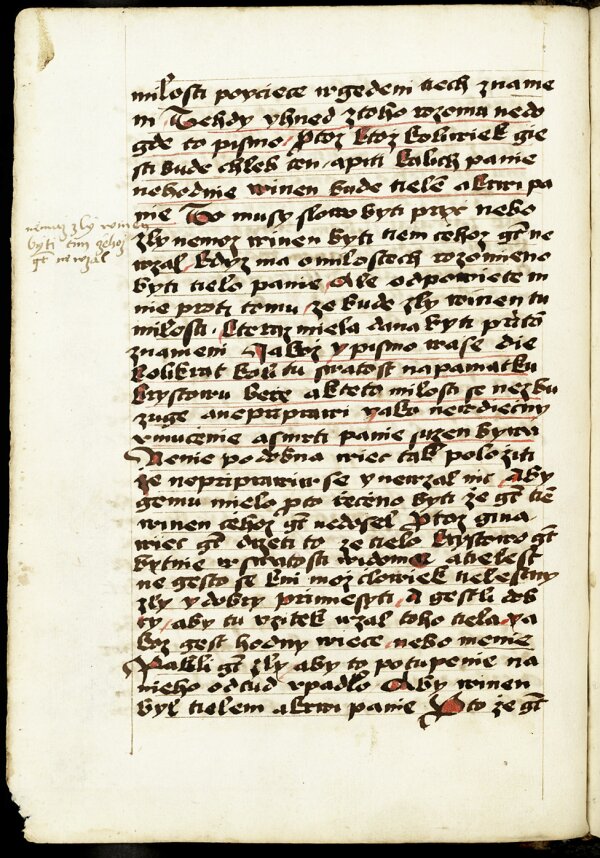 milosti poyciece w gedem tiech zname
ni Tehdy yhned ztoho rozomu nedo
gde to pismo Protoz ktoz koliwiek gie
sti bude chleb ten apiti kalich panie
nehodnie winen bude tiele a krwi pa
nie To musy slowo byti nebo
zly nemoz winen byti tiem cehoz gt ne
wzal kdyz ma o milostech rozomieno
byti tielo panie Ale odpowiete m
nie proti tomu ze bude zly winen tu
milosti kteraz miela dana byti
znameni Jakoz y pismo wase die
kolikrat koli tu swatost na pamatku
krystowu beře a kteto milosti se nezbu
zuge a nepriprawi yako newdiecny
vmučenie a smrti panie suzen bywa
Nenie podobna wiec tak poloziti
ze nepriprawiw se y newzal nic Aby
gemu mielo pro to řečeno byti že gt tiem
winen cehoz gt nedosel Protoz gina
wiec gt drzeti to ze tielo krystowo gt
bytnie w swatosti widome a tielest
ne gesto se k ni moz clowiek tielestny
zly y dobry primiesyti A gestli dob
ry aby tu vzitek wzal toho tiela ya
koz gest hodny wiece nebo menie
Pakli gt zly aby to potupenie na
nieho odtud vpadlo Aby winen
byl tielem a krwi panie Pro to že gt
nemoz zly winen
byti tim cehoz
gt ne wzal